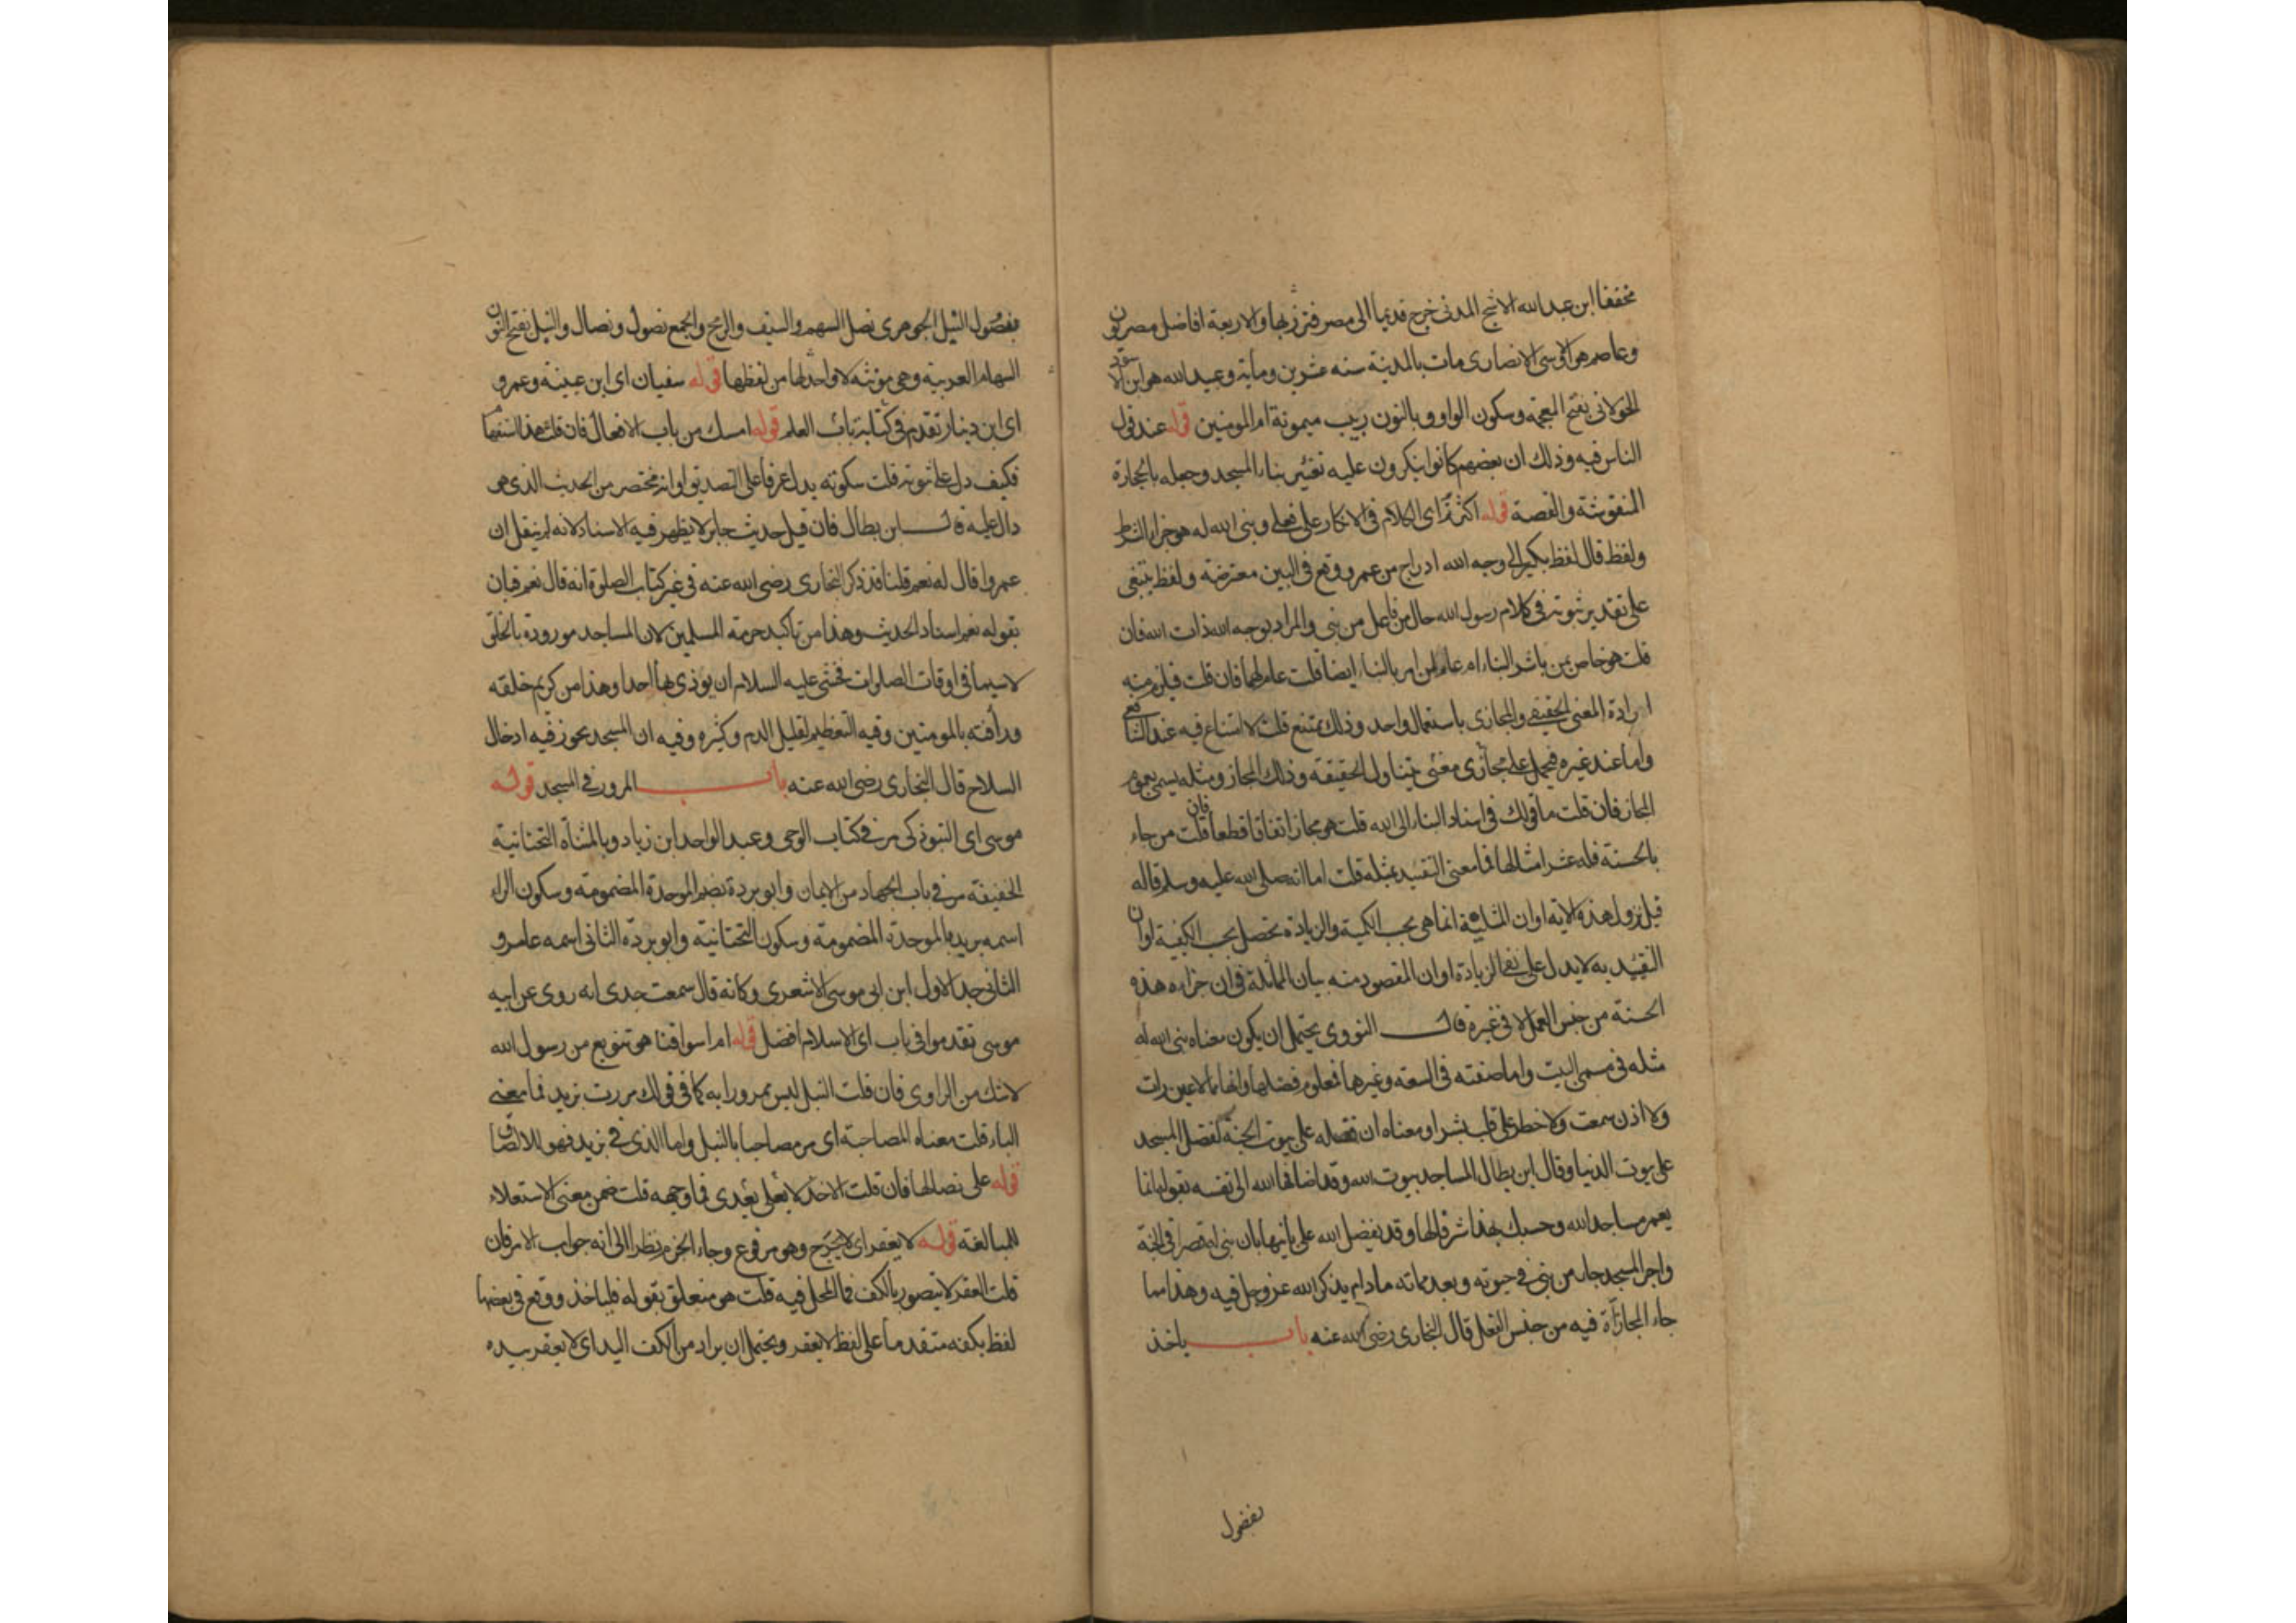 مخففا ابن عبد الله الاشج المدنى خرج قديما الى مصر فنزل بها والاربعة افاضل مصريون
وعاصم هو الاوسى الانصارى مات بالمدينة سنه عشرين ومأية وعبيد الله هو ابن الاسود
الخولانى بفتح المعجمه وسكون الواو وبالنون ربيب ميمونة ام المومنين قوله عند قول
الناس فيه وذلك ان بعضهم كانوا ينكرون عليه تغيير بناء المسجد وجعله بالحجارة
المنقوشة والقصة قوله اكثرتم اى الكلام فى الانكار على فعلى وبنى الله له هو جزاء الشرط
ولفظ قال لفظ بكير الى وجه الله ادراج من عمرو وقع فى البين معترضة ولفظ يبتغى
على تقدير ثبوته فى كلام رسول الله حال من فاعل من بنى والمراد بوجه الله ذات الله فان
قلت هو خاص بمن باشر البناء ام عام لمن امر بالبناء ايضا قلت عام لهما فان قلت فيلزم منه
ارادة المعنى الحقيقى والمجازى باستعمال واحد وذلك ممتنع قلت لا امتناع فيه عند الشافعى
واما عند غيره فيحمل على مجازى معنى يتناول الحقيقه وذلك المجاز ومثله يسمى بعموم
المجاز فان قلت ما قولك فى اسناد البناء الى الله قلت هو مجاز اتفاقا قطعا فان قلت من جاء
بالحسنة فله عشر امثالها فما معنى التقييد بمثله قلت اما انه صلى الله عليه وسلم قاله
قبل نزول هذه الاية او ان المثلية انما هى بحسب الكمية والزيادة تحصل بحسب الكيفية او ان
التقييد به لا يدل على نفى الزيادة او ان المقصود منه بيان المماثلة فى ان جزاء هذه
الحسنة من جنس العمل لا فى غيره قال النووى يحتمل ان يكون معناه بنى الله له
مثله فى مسمى البيت واما صفته فى السعة وغيرها فمعلوم فضلها وانها ما لا عين رات
ولا اذن سمعت ولا خطر على قلب بشر او معناه ان فضله على بيوت الجنة كفضل المسجد
على بيوت الدنيا وقال ابن بطال المساجد بيوت الله وقد اضافها الله الى نفسه بقوله انما
يعمر مساجد الله وحسبك بهذا شرفا لها وقد يفضل الله على بانيها بان بنى له قصرا فى الجنة
واجر المسجد جار من بنى فى حيوته وبعد مماته ما دام يذكر الله عز وجل فيه وهذا مما
جاء المجازاة فيه من جنس الفعل قال البخارى رضى الله عنه باب ياخذ
بفصول
بفصول النبل الجوهرى نصل السهم والسيف والرمح والجمع نصول ونصال والنبل بفتح النون
السهام العربية وهى مؤنثه لا واحد لها من لفظها قوله سفيان اى ابن عيينة وعمرو
اى ابن دينار تقدم فى كتابة باب العلم قوله امسك من باب الافعال فان قلت هذا استفهام
فكيف دل على ثبوته قلت سكوته يدل عرفا على التصديق او انه مختصر من الحديث الذى هو
دال عليه قال ابن بطال فان قيل حديث جابر لا يظهر فيه الاسناد لانه لم ينقل ان
عمروا قال له نعم قلنا قد ذكر البخارى رضى الله عنه فى غير كتاب الصلوة انه قال نعم فبان
بقوله نعم اسناد الحديث وهذا من تاكيد حرمة المسلمين لان المساجد مورودة بالخلق
لا سيما فى اوقات الصلوات فخشى عليه السلام ان يوذى بها احدا وهذا من كريم خلقه
ورأفته بالمومنين وفيه التعظيم لقليل الدم وكثيره وفيه ان المسجد يجوز فيه ادخال
السلاح قال البخارى رضى الله عنه باب المرور فى المسجد قوله
موسى اى التبوذكى مر فى كتاب الوحى وعبد الواحد ابن زياد وبالمثناة التحتانية
الخفيفة مر فى باب الجهاد من الايمان وابو بردة بضم الموحدة المضمومة وسكون الراء
اسمه بريد بالموحدة المضمومة وسكون التحتانية وابو بردة الثانى اسمه عامر و
الثانى جد الاول ابن ابى موسى الاشعرى وكانه قال سمعت جدى انه روى عن ابيه
موسى تقدموا فى باب اى الاسلام افضل قوله او اسواقنا هو تنويع من رسول الله
لا شك من الراوى فان قلت النبل ليس ممرورا به كما فى قولك مررت بزيد فما معنى
الباء قلت معناه المصاحبة اى مر مصاحبا بالنبل واما الذى فى بزيد فهو للالصاق
قوله على نصالها فان قلت الاخذ لا بعلى يعدى فما وجهه قلت ضمن معنى الاستعلاء
للمبالغة قوله لا يعقر اى لا يجرح وهو مرفوع وجاء الجزم نظرا الى انه جواب الامر فان
قلت العقر لا يتصور بالكف فما المحل فيه قلت هو متعلق بقوله فلياخذ ووقع فى بعضها
لفظ بكفه متقدما على لفظ لا يعقر ويحتمل ان يراد من الكف اليد اى لا يعقر بيده